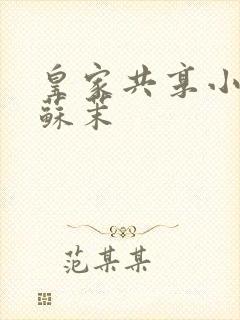 皇家共享小
蘇茉
范某某